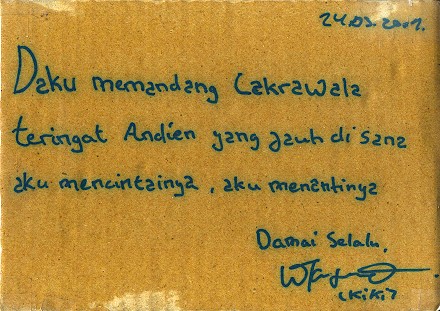 24.03.2007.
Daku memandang Cakrawala
teringat Andien yang jauh di sana
aku mencintainya, aku menantinya
Damai Selalu,
(KiKi)